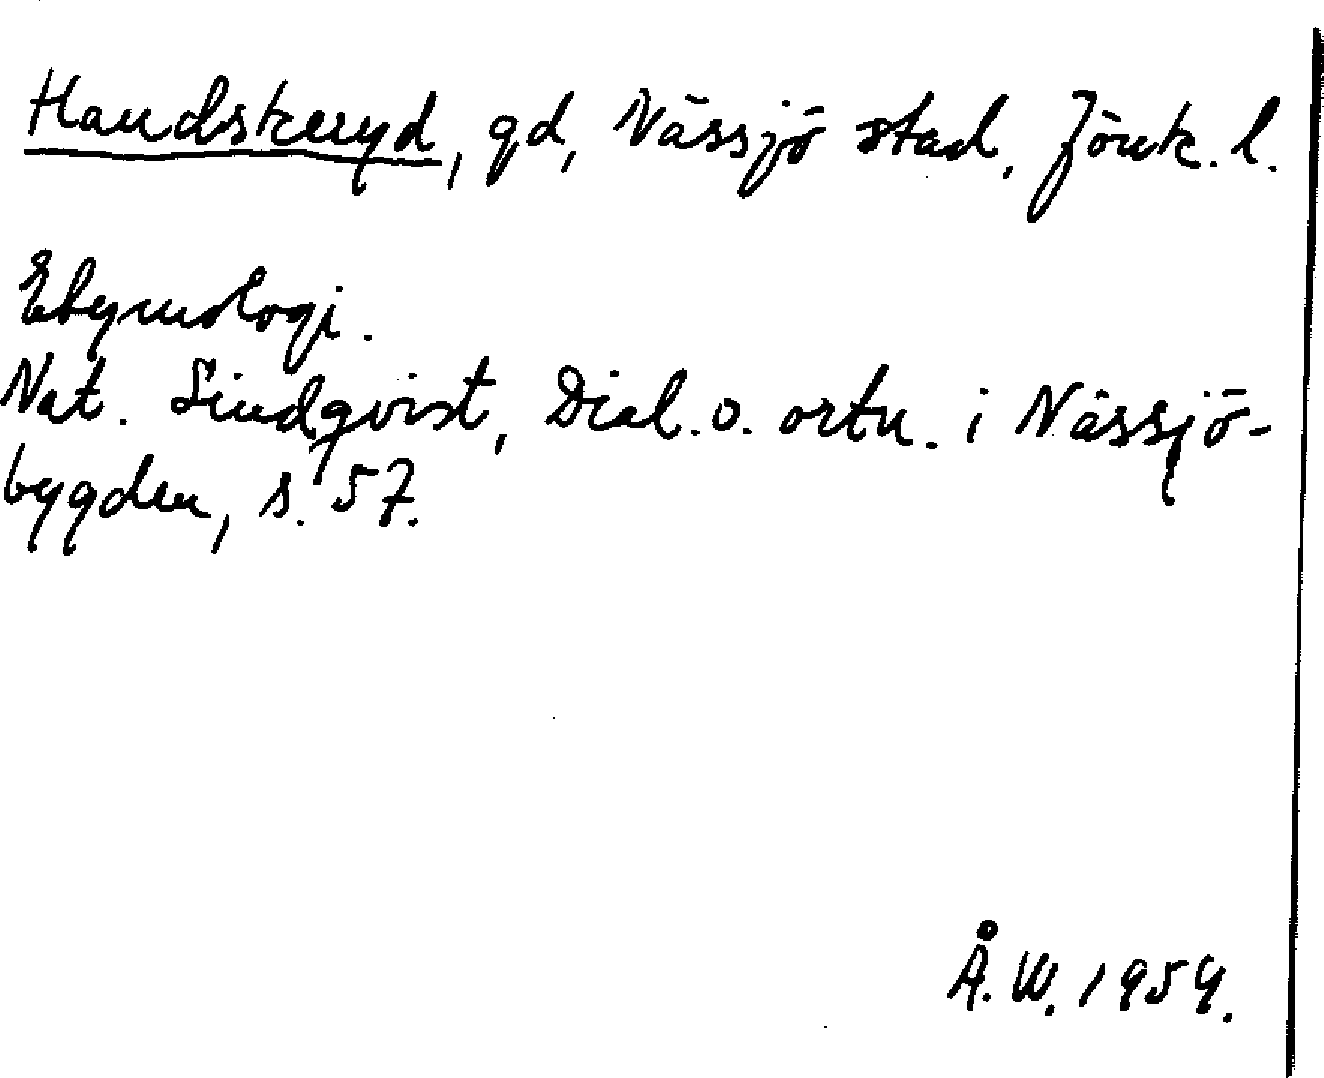 Handskeryd, gd, Nässjö stad, Jönk. l.
Etymologi.
Nat. Lindqvist, Dial. o. ortn. i Nässjö-
bygden, s. 57.
Å. W. 1954.